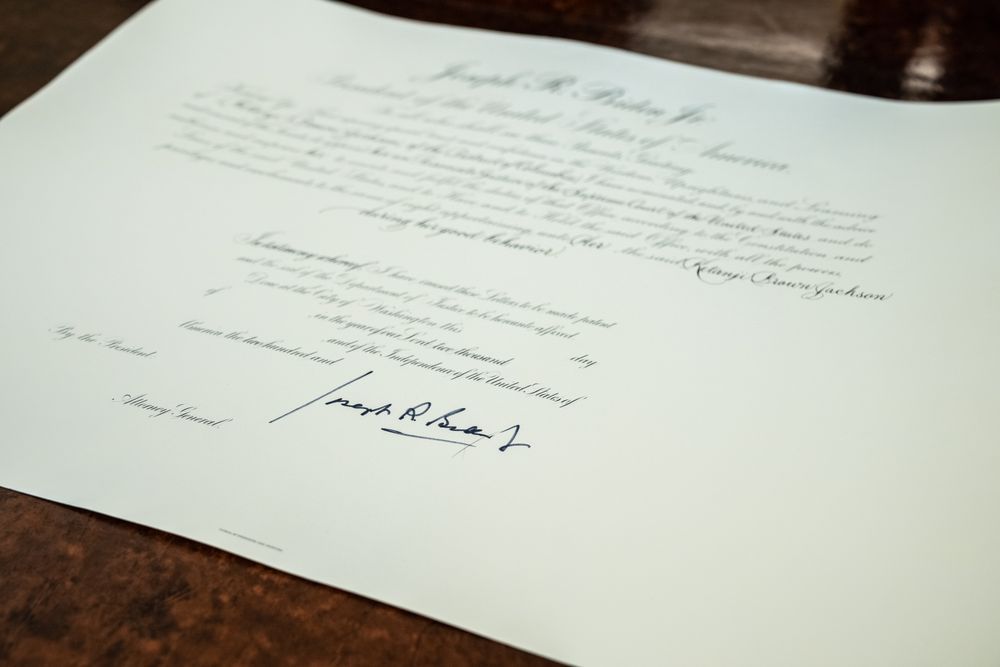 Joseph R. Biden Jr.
President of the United States of America.
To all who shall see these Presents, Greeting:
Know Ye; that reposing special trust and confidence in the Wisdom, Uprightness, and Learning
of Ketanji Brown Jackson, of the District of Columbia, I have nominated, and, by and with the advice
and consent of the Senate, do appoint her an Associate Justice of the Supreme Court of the United States and do
authorize and empower her to execute and fulfil the duties of that Office according to the Constitution and
Laws of the said United States, and to Have and to Hold the said Office, with all the powers,
privileges and emoluments to the same of right appertaining, unto Her, the said Ketanji Brown Jackson
during her good behavior.
In testimony whereof, I have caused these Letters to be made patent
and the seal of the Department of Justice to be hereunto affixed.
Done at the City of Washington this day
of in the year of our Lord two thousand
and of the Independence of the United States of
America the two hundred and
Joseph R. Biden Jr
By the President
Attorney General.